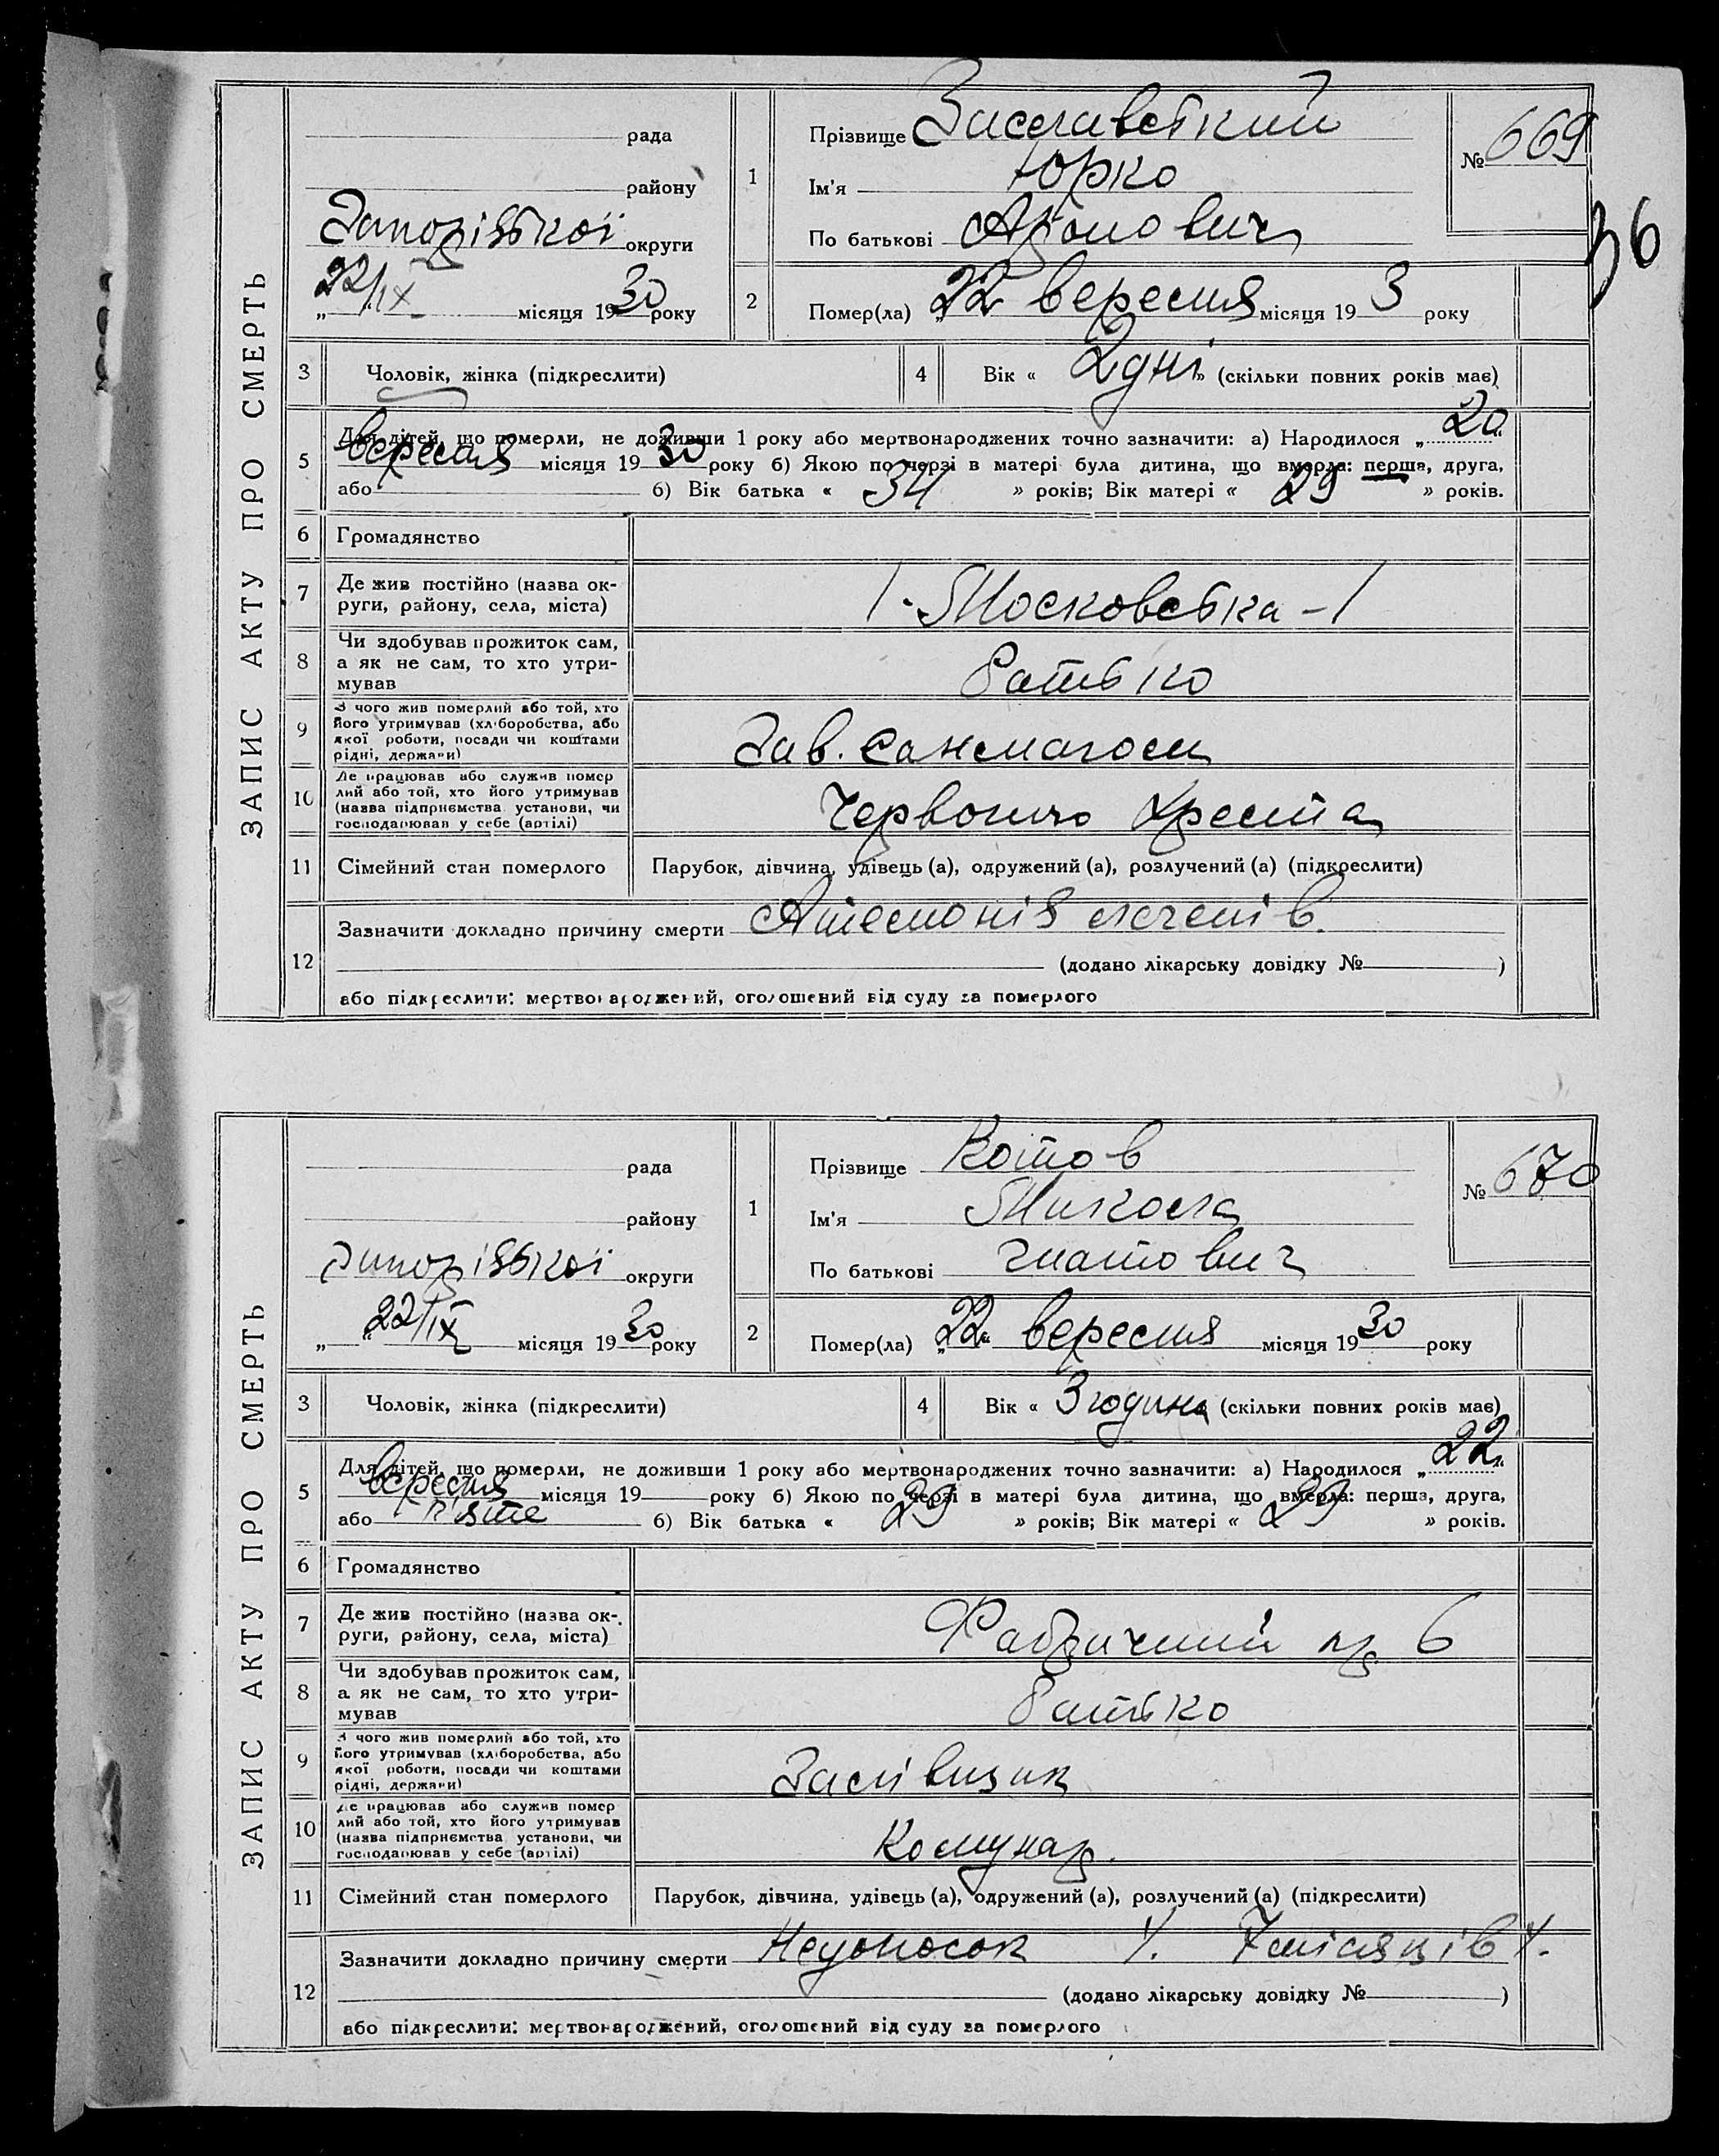 36
ЗАПИС АКТУ ПРО СМЕРТЬ
рада
району
Запорізької округи
22/IX місяця 1930 року
1 Прізвище Заславський
Ім'я Юрко
По батькові Аронович
№ 669
2 Помер(ла) „22 вересня місяця 193 року
3 Чоловік, жінка (підкреслити)
4 Вік « 2 дні » (скільки повних років має)
5 Для дітей, що померли, не доживши 1 року або мертвонароджених точно зазначити: а) Народилося „20“
вересня місяця 1930 року б) Якою по черзі в матері була дитина, що вмерла: перша, друга,
або б) Вік батька « 34 » років; Вік матері « 29 » років.
6 Громадянство
7 Де жив постійно (назва ок-
руги, району, села, міста)
1. Московська - 1
8 Чи здобував прожиток сам,
а як не сам, то хто утри-
мував
Батько
9 З чого жив померлий або той, хто
його утримував (хліборобства, або
якої роботи, посади чи коштами
рідні, держави)
Зав.
10 Де працював або служив помер
лий або той, хто його утримував
(назва підприємства, установи, чи
господарював у себе (артілі)
Червоного Хреста
11 Сімейний стан померлого
Парубок, дівчина, удівець (а), одружений (а), розлучений (а) (підкреслити)
12 Зазначити докладно причину смерти
(додано лікарську довідку № )
або підкреслити: мертвонароджений, оголошений від суду за померлого
ЗАПИС АКТУ ПРО СМЕРТЬ
рада
району
Запорізької округи
„ “ 22/IX місяця 1930 року
1 Прізвище Котов
Ім'я Микола
По батькові Гнатович
№ 670
2 Помер(ла) „22“ вересня місяця 1930 року
3 Чоловік, жінка (підкреслити)
4 Вік « 3 години (скільки повних років має)
5 Для дітей, що померли, не доживши 1 року або мертвонароджених точно зазначити: а) Народилося „22“
вересня місяця 19 року б) Якою по черзі в матері була дитина, що вмерла: перша, друга,
або п'яте б) Вік батька « 29 » років; Вік матері « 29 » років.
6 Громадянство
7 Де жив постійно (назва ок-
руги, району, села, міста)
Фабричний пр 6
8 Чи здобував прожиток сам,
а як не сам, то хто утри-
мував
Батько
9 З чого жив померлий або той, хто
його утримував (хліборобства, або
якої роботи, посади чи коштами
рідні, держави)
10 Де працював або служив помер
лий або той, хто його утримував
(назва підприємства, установи, чи
господарював у себе (артілі)
Комунар.
11 Сімейний стан померлого
Парубок, дівчина, удівець (а), одружений (а), розлучений (а) (підкреслити)
12 Зазначити докладно причину смерти Недоносок /. 7 місяців /.
(додано лікарську довідку № )
або підкреслити: мертвонароджений, оголошений від суду за померлого